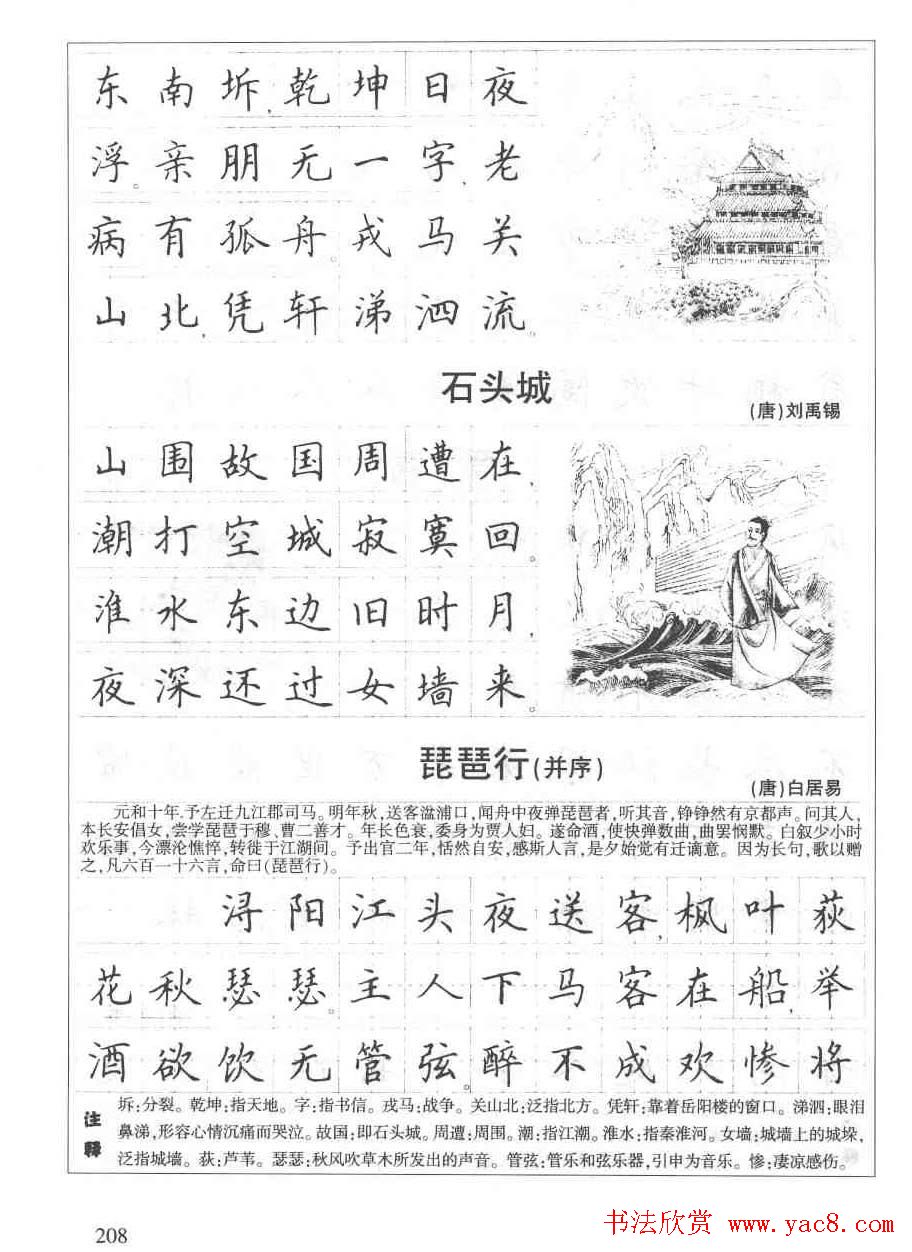 东南坼,乾坤日夜
浮。亲朋无一字,老
病有孤舟。戎马关
山北,凭轩涕泗流。
石头城
(唐)刘禹锡
山围故国周遭在
潮打空城寂寞回。
淮水东边旧时月,
夜深还过女墙来。
琵琶行(并序)
(唐)白居易
元和十年.予左迁九江郡司马。明年秋,送客湓浦口,闻舟中夜弹琵琶者,听其音,铮铮然有京都声。问其人,
本长安倡女,尝学琵琶于穆、曹二善才。年长色衰,委身为贾人妇。遂命酒,使快弹数曲,曲罢悯默。自叙少小时
欢乐事,今漂沦憔悴,转徙于江湖间。予出官二年,恬然自安,感斯人言,是夕始觉有迁谪意。因为长句,歌以赠
之,凡六百一十六言,命曰(琵琶行)。
浔阳江头夜送客,枫叶荻
花秋瑟瑟。主人下马客在船,举
酒欲饮无管弦。醉不成欢惨将
注释
坼:分裂。乾坤:指天地。字:指书信。戎马:战争。关山北:泛指北方。凭轩:靠着岳阳楼的窗口。涕泗:眼泪
鼻涕,形容心情沉痛而哭泣。故国:即石头城。周遭:周围。潮:指江潮。淮水:指秦淮河。女墙:城墙上的城垛,
泛指城墙。荻:芦苇。瑟瑟:秋风吹草木所发出的声音。管弦:管乐和弦乐器,引申为音乐。惨:凄凉感伤。
208
书法欣赏 www.yac8.com